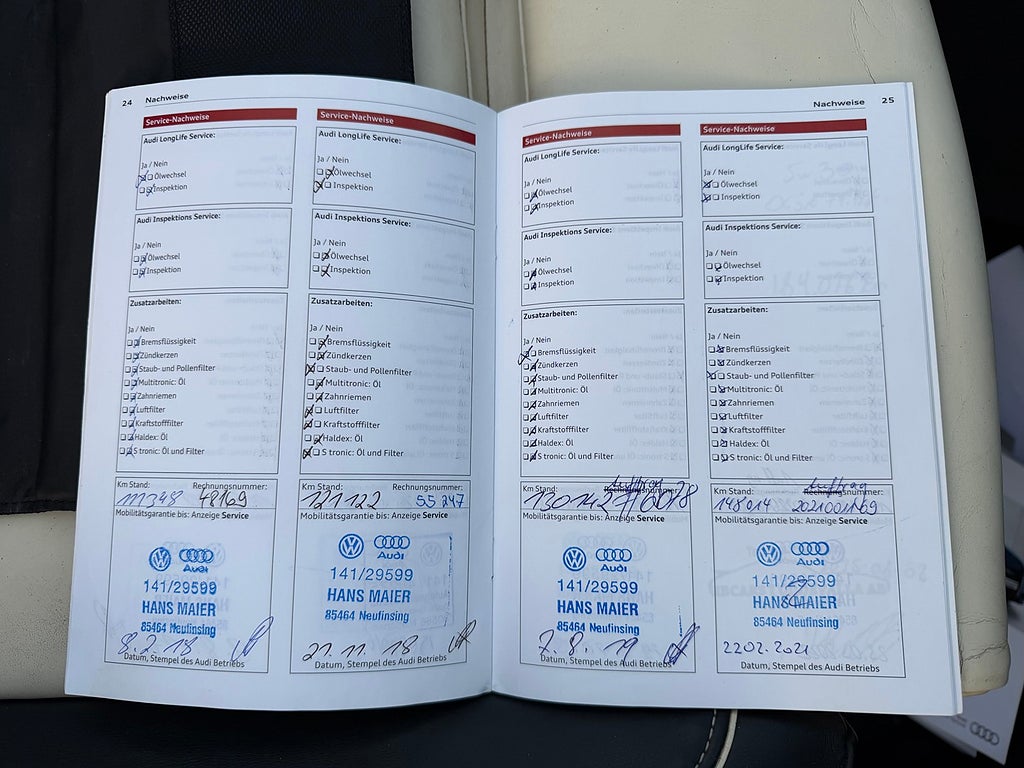 24 Nachweise
Service-Nachweise
Audi LongLife Service:
Ja / Nein
Ölwechsel
Inspektion
Audi Inspektions Service:
Ja / Nein
Ölwechsel
Inspektion
Zusatzarbeiten:
Ja / Nein
Bremsflüssigkeit
Zündkerzen
Staub- und Pollenfilter
Multitronic: Öl
Zahnriemen
Luftfilter
Kraftstofffilter
Haldex: Öl
S tronic: Öl und Filter
Km Stand: Rechnungsnummer:
111348 48169
Mobilitätsgarantie bis: Anzeige Service
Audi
141/29599
HANS MAIER
85464 Neufinsing
8.2.18
Datum, Stempel des Audi Betriebs
Service-Nachweise
Audi LongLife Service:
Ja / Nein
Ölwechsel
Inspektion
Audi Inspektions Service:
Ja / Nein
Ölwechsel
Inspektion
Zusatzarbeiten:
Ja / Nein
Bremsflüssigkeit
Zündkerzen
Staub- und Pollenfilter
Multitronic: Öl
Zahnriemen
Luftfilter
Kraftstofffilter
Haldex: Öl
S tronic: Öl und Filter
Km Stand: Rechnungsnummer:
121122 55247
Mobilitätsgarantie bis: Anzeige Service
Audi
141/29599
HANS MAIER
85464 Neufinsing
21.11.18
Datum, Stempel des Audi Betriebs
Nachweise 25
Service-Nachweise
Audi LongLife Service:
Ja / Nein
Ölwechsel
Inspektion
Audi Inspektions Service:
Ja / Nein
Ölwechsel
Inspektion
Zusatzarbeiten:
Ja / Nein
Bremsflüssigkeit
Zündkerzen
Staub- und Pollenfilter
Multitronic: Öl
Zahnriemen
Luftfilter
Kraftstofffilter
Haldex: Öl
S tronic: Öl und Filter
Auftrag
Km Stand:
130142
Mobilitätsgarantie bis: Anzeige Service
Audi
141/29599
HANS MAIER
85464 Neufinsing
7.8.19
Datum, Stempel des Audi Betriebs
Service-Nachweise
Audi LongLife Service:
Ja / Nein
Ölwechsel
Inspektion
Audi Inspektions Service:
Ja / Nein
Ölwechsel
Inspektion
Zusatzarbeiten:
Ja / Nein
Bremsflüssigkeit
Zündkerzen
Staub- und Pollenfilter
Multitronic: Öl
Zahnriemen
Luftfilter
Kraftstofffilter
Haldex: Öl
S tronic: Öl und Filter
Auftrag
Km Stand: Rechnungsnummer:
148014
Mobilitätsgarantie bis: Anzeige Service
Audi
141/29599
HANS MAIER
85464 Neufinsing
2202.2021
Datum, Stempel des Audi Betriebs